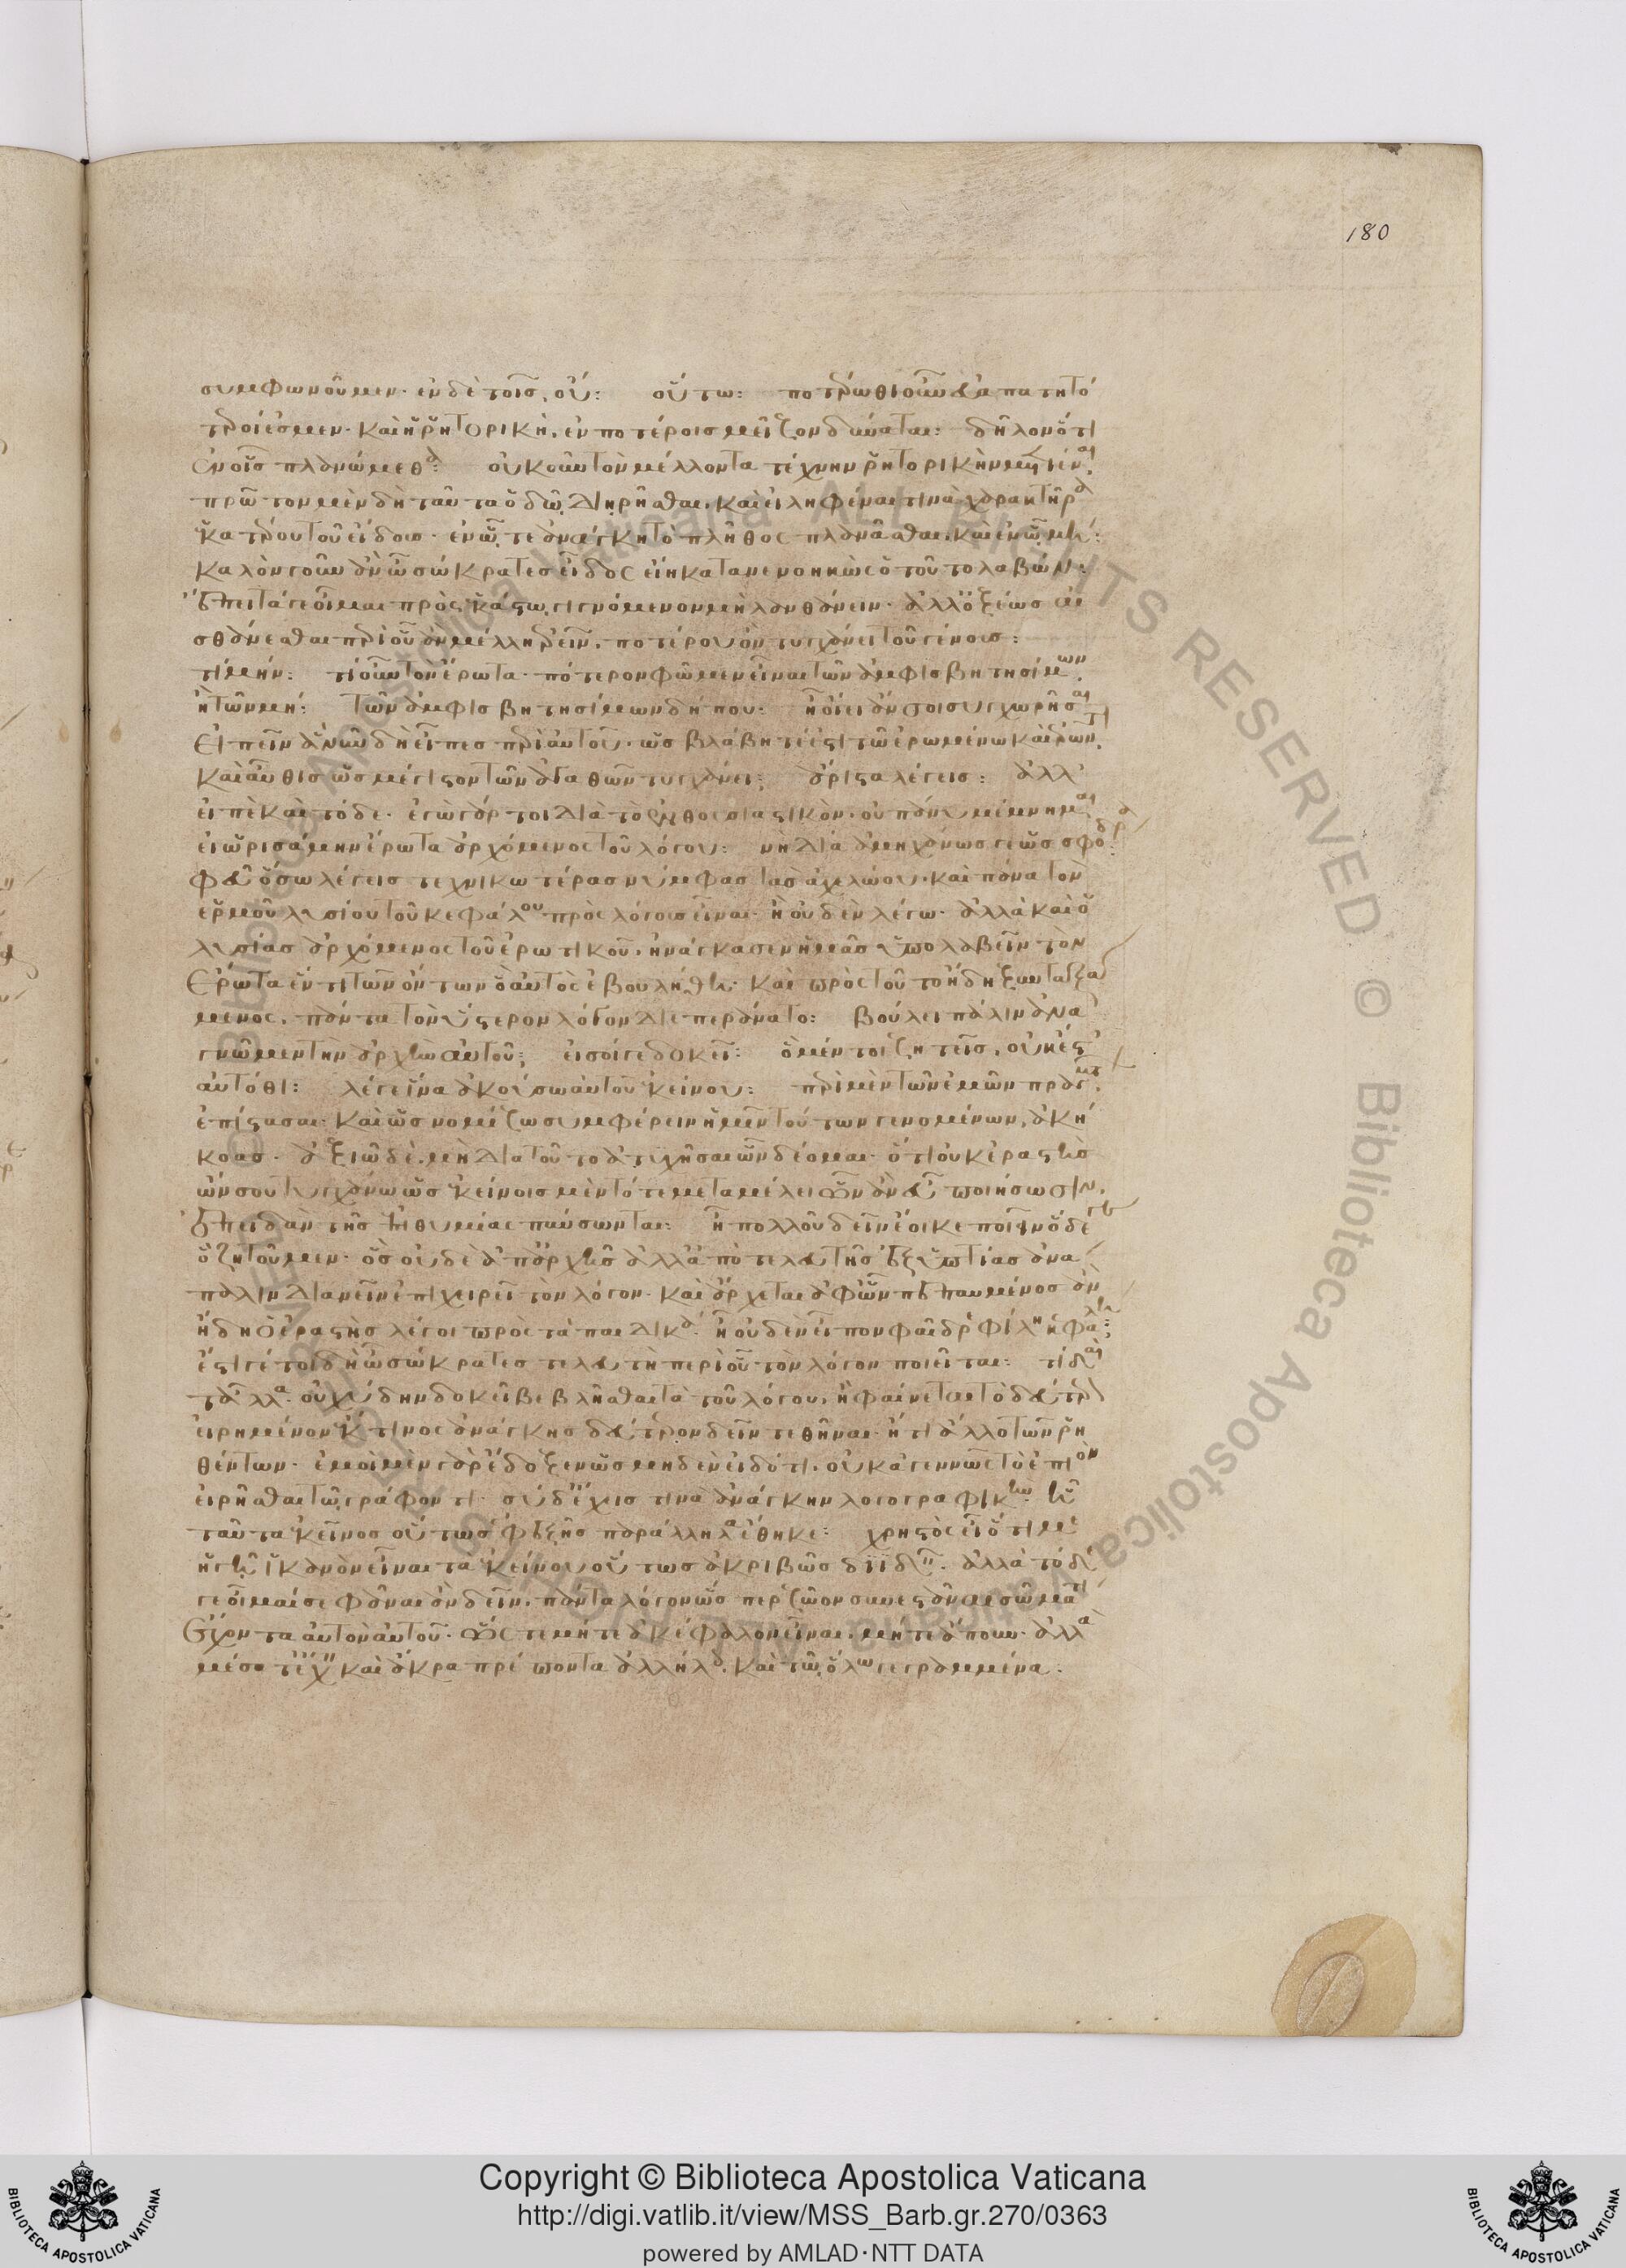 συμφωνοῦμεν· ἐν δὲ τοῖς, οὔ: οὕτω: ποτέρωθι οὖν εὐαπατητό
τεροί ἐσμεν· καὶ ἡ ῥητορικὴ, ἐν ποτέροις μεῖζον δύναται: δῆλον ὅτι
ἐν οἷς πλανώμεθα: οὐκοῦν τὸν μέλλοντα τέχνην ῥητορικὴν μετιέναι,
πρῶτον μὲν δὴ ταῦτα ὁδῷ διηρῆσθαι, καὶ εἰληφέναι τινὰ χαρακτῆρα
ἑκατέρου τοῦ εἴδους· ἐν ᾧ τε ἀνάγκη τὸ πλῆθος πλανᾶσθαι, καὶ ἐν ᾧ μή:
καλὸν γοῦν ἂν ὦ σώκρατες εἶδος εἴη κατανενοηκὼς ὁ τοῦτο λαβών:
ἔπειτά γε οἶμαι πρὸς ἑκάστῳ γιγνόμενον μὴ λανθάνειν· ἀλλ' ὀξέως αἰ
σθάνεσθαι περὶ οὗ ἂν μέλλῃ ἐρεῖν, ποτέρου ὂν τυγχάνει τοῦ γένους:
τί μήν: τί οὖν τὸν ἔρωτα· πότερον φῶμεν εἶναι τῶν ἀμφισβητησίμων,
ἢ τῶν μή: τῶν ἀμφισβητησίμων δήπου: ἢ οἴει ἄν σοι συγχωρῆσαι
εἰπεῖν ἃ νῦν δὴ εἶπες περὶ αὐτοῦ· ὡς βλάβη τέ ἐστι τῷ ἐρωμένῳ καὶ ἐρῶντι,
καὶ αὖθις ὡς μέγιστον τῶν ἀγαθῶν τυγχάνει; ἄριστα λέγεις: ἀλλ'
εἰπὲ καὶ τόδε· ἐγὼ γάρ τοι διὰ τὸ ἐνθουσιαστικὸν, οὐ πάνυ μέμνημαι
εἰ ὡρισάμην ἔρωτα ἀρχόμενος τοῦ λόγου: νὴ δία ἀμηχάνως γε ὡς σφόδρα:
φεῦ ὅσῳ λέγεις τεχνικωτέρας νύμφας τὰς ἀχελώου, καὶ πᾶνα τὸν
ἑρμοῦ λυσίου τοῦ κεφάλου πρὸς λόγους εἶναι· ἢ οὐδὲν λέγω· ἀλλὰ καὶ ὁ
λυσίας ἀρχόμενος τοῦ ἐρωτικοῦ, ἠνάγκασεν ἡμᾶς ὑπολαβεῖν τὸν
ἔρωτα ἕν τι τῶν ὄντων ὃ αὐτὸς ἐβουλήθη· καὶ πρὸς τοῦτο ἤδη ξυνταξά
μενος, πάντα τὸν ὕστερον λόγον διεπεράνατο: βούλει πάλιν ἀνα
γνῶμεν τὴν ἀρχὴν αὐτοῦ; εἰ σοί γε δοκεῖ: ὃ μέντοι ζητεῖς, οὐκ ἔστ'
αὐτόθι: λέγε ἵνα ἀκούσω αὐτοῦ ἐκείνου: περὶ μὲν τῶν ἐμῶν πραγμάτων
ἐπίστασαι· καὶ ὡς νομίζω συμφέρειν ἡμῖν τούτων γενομένων, ἀκή
κοας· ἀξιῶ δὲ, μὴ διατοῦτο ἀτυχῆσαι ὧν δέομαι· ὅτι οὐκ ἐραστὴς
ὤν σου τυγχάνω ὡς ἐκείνοις μὲν τότε μεταμέλει ὧν ἂν εὖ ποιήσωσιν,
ἐπειδὰν τῆς ἐπιθυμίας παύσωνται: ἦ πολλοῦ δεῖν ἔοικε ποιεῖν ὅδε γε
ὃ ζητοῦμεν· ὃς οὐδὲ ἀπ' ἀρχῆς ἀλλ' ἀπὸ τελευτῆς ἐξ ὑπτίας ἀνά
παλιν διανεῖν ἐπιχειρεῖ τὸν λόγον· καὶ ἄρχεται ἀφ' ὧν πεπαυμένος ἂν
ἤδη ὁ ἐραστὴς λέγοι πρὸς τὰ παιδικά· ἢ οὐδὲν εἶπον φαῖδρε φίλη κεφαλή;
ἔστι γέ τοι δὴ ὦ σώκρατες τελευτὴ περὶ οὗ τὸν λόγον ποιεῖται: τί δαὶ
τἆλλα· οὐ χύδην δοκεῖ βεβλῆσθαι τὰ τοῦ λόγου, ἢ φαίνεται τὸ δεύτερον
εἰρημένον ἔκ τινος ἀνάγκης δεύτερον δεῖν τεθῆναι· ἤ τι ἄλλο τῶν ῥη
θέντων· ἐμοὶ μὲν γὰρ ἔδοξεν ὡς μηδὲν εἰδότι, οὐκ ἀγεννῶς τὸ ἐπιὸν
εἰρῆσθαι τῷ γράφοντι· σὺ δ' ἔχεις τινὰ ἀνάγκην λογογραφικὴν ᾗ
ταῦτα ἐκεῖνος οὕτως ἐφεξῆς παράλληλα ἔθηκε: χρηστὸς εἶ ὅτι με
ἡγῇ ἱκανὸν εἶναι τὰ ἐκείνου οὕτως ἀκριβῶς διϊδεῖν· ἀλλὰ τόδε
γε οἶμαί σε φάναι ἂν δεῖν, πάντα λόγον ὥσπερ ζῶον συνεστάναι σῶμά τι
ἔχοντα αὐτὸν αὑτοῦ· ὥστε μήτε ἀκέφαλον εἶναι, μήτε ἄπουν· ἀλλὰ
μέσα τε ἔχειν καὶ ἄκρα πρέποντα ἀλλήλοις, καὶ τῷ ὅλῳ γεγραμμένα:
180
ALL RIGHTS RESERVED © Biblioteca Apostolica Vaticana
Copyright © Biblioteca Apostolica Vaticana
http://digi.vatlib.it/view/MSS_Barb.gr.270/0363
powered by AMLAD·NTT DATA
BIBLIOTECA APOSTOLICA VATICANA
BIBLIOTECA APOSTOLICA VATICANA